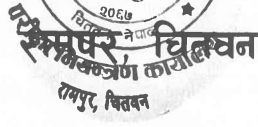 २०६७
चितवन, नेपाल
रामपुर चितवन
परीक्षा नियन्त्रण कार्यालय
रामपुर, चितवन